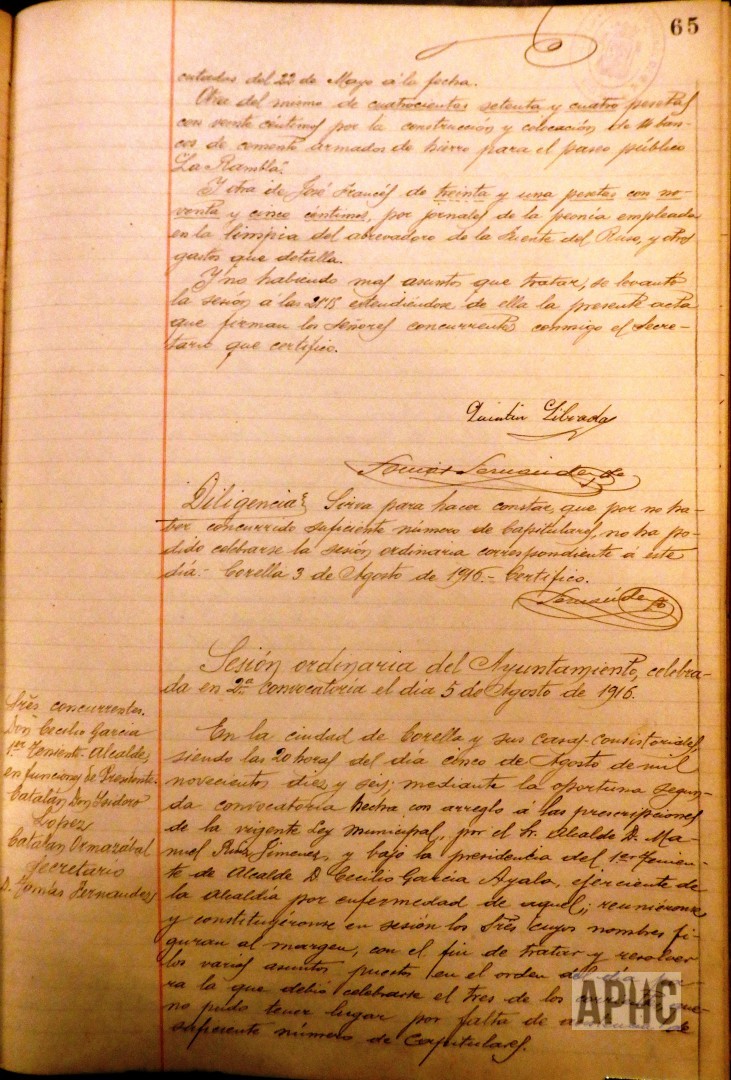 65
cutadas del 22 de Mayo á la fecha.
Otra del mismo de cuatrocientas setenta y cuatro pesetas
con veinte céntimos por la construcción y colocación de ban-
cos de cemento armados de hierro para el paseo público
"La Rambla".
Y otra de José Francés de treinta y una pesetas con no-
venta y cinco céntimos, por jornales de la peonía empleada
en la limpia del abrevadero de la Fuente del , y otros
gastos que detalla.
Y no habiendo mas asuntos que tratar, se levantó
la sesión á las extendiéndose de ella la presente acta
que firman los Señores concurrentes conmigo el Secre-
tario que certifico.
Quintin Librada
Tomás Fernandez
Diligencia: Sirva para hacer constar, que por no ha-
ber concurrido suficiente número de Capitulares, no ha po-
dido celebrarse la sesión ordinaria correspondiente á este
día.- Corella 3 de Agosto de 1916.- Certifico.
Fernández
Sesión ordinaria del Ayuntamiento, celebra-
da en 2ª convocatoria el dia 5 de Agosto de 1916.
Sres concurrentes.
Don Cecilio Garcia
1er Teniente-Alcalde,
en funciones de Presidente.
Catalán Don Isidoro
Lopez
Catalan Ormazábal
Secretario
D. Tomás Fernandez
En la ciudad de Corella y sus Casas-Consistoriales
siendo las 20 horas del día cinco de Agosto de mil
novecientos diez y seis; mediante la oportuna segun-
da convocatoria hecha con arreglo a las prescripciones
de la vigente Ley Municipal, por el Sr. Alcalde D. Ma-
nuel Ruiz Jimenez, y bajo la presidencia del 1er Tenien-
te de Alcalde D. Cecilio García Ayala, ejerciente de
la Alcaldía por enfermedad de aquel; reuniéronse
y constituyéronse en sesión los Sres cuyos nombres fi-
guran al margen, con el fin de tratar y resolver
los varios asuntos puestos en el orden del día pa-
ra la que debió celebrarse el tres de los corrientes que
no pudo tener lugar por falta de de
suficiente número de Capitulares.
APHC